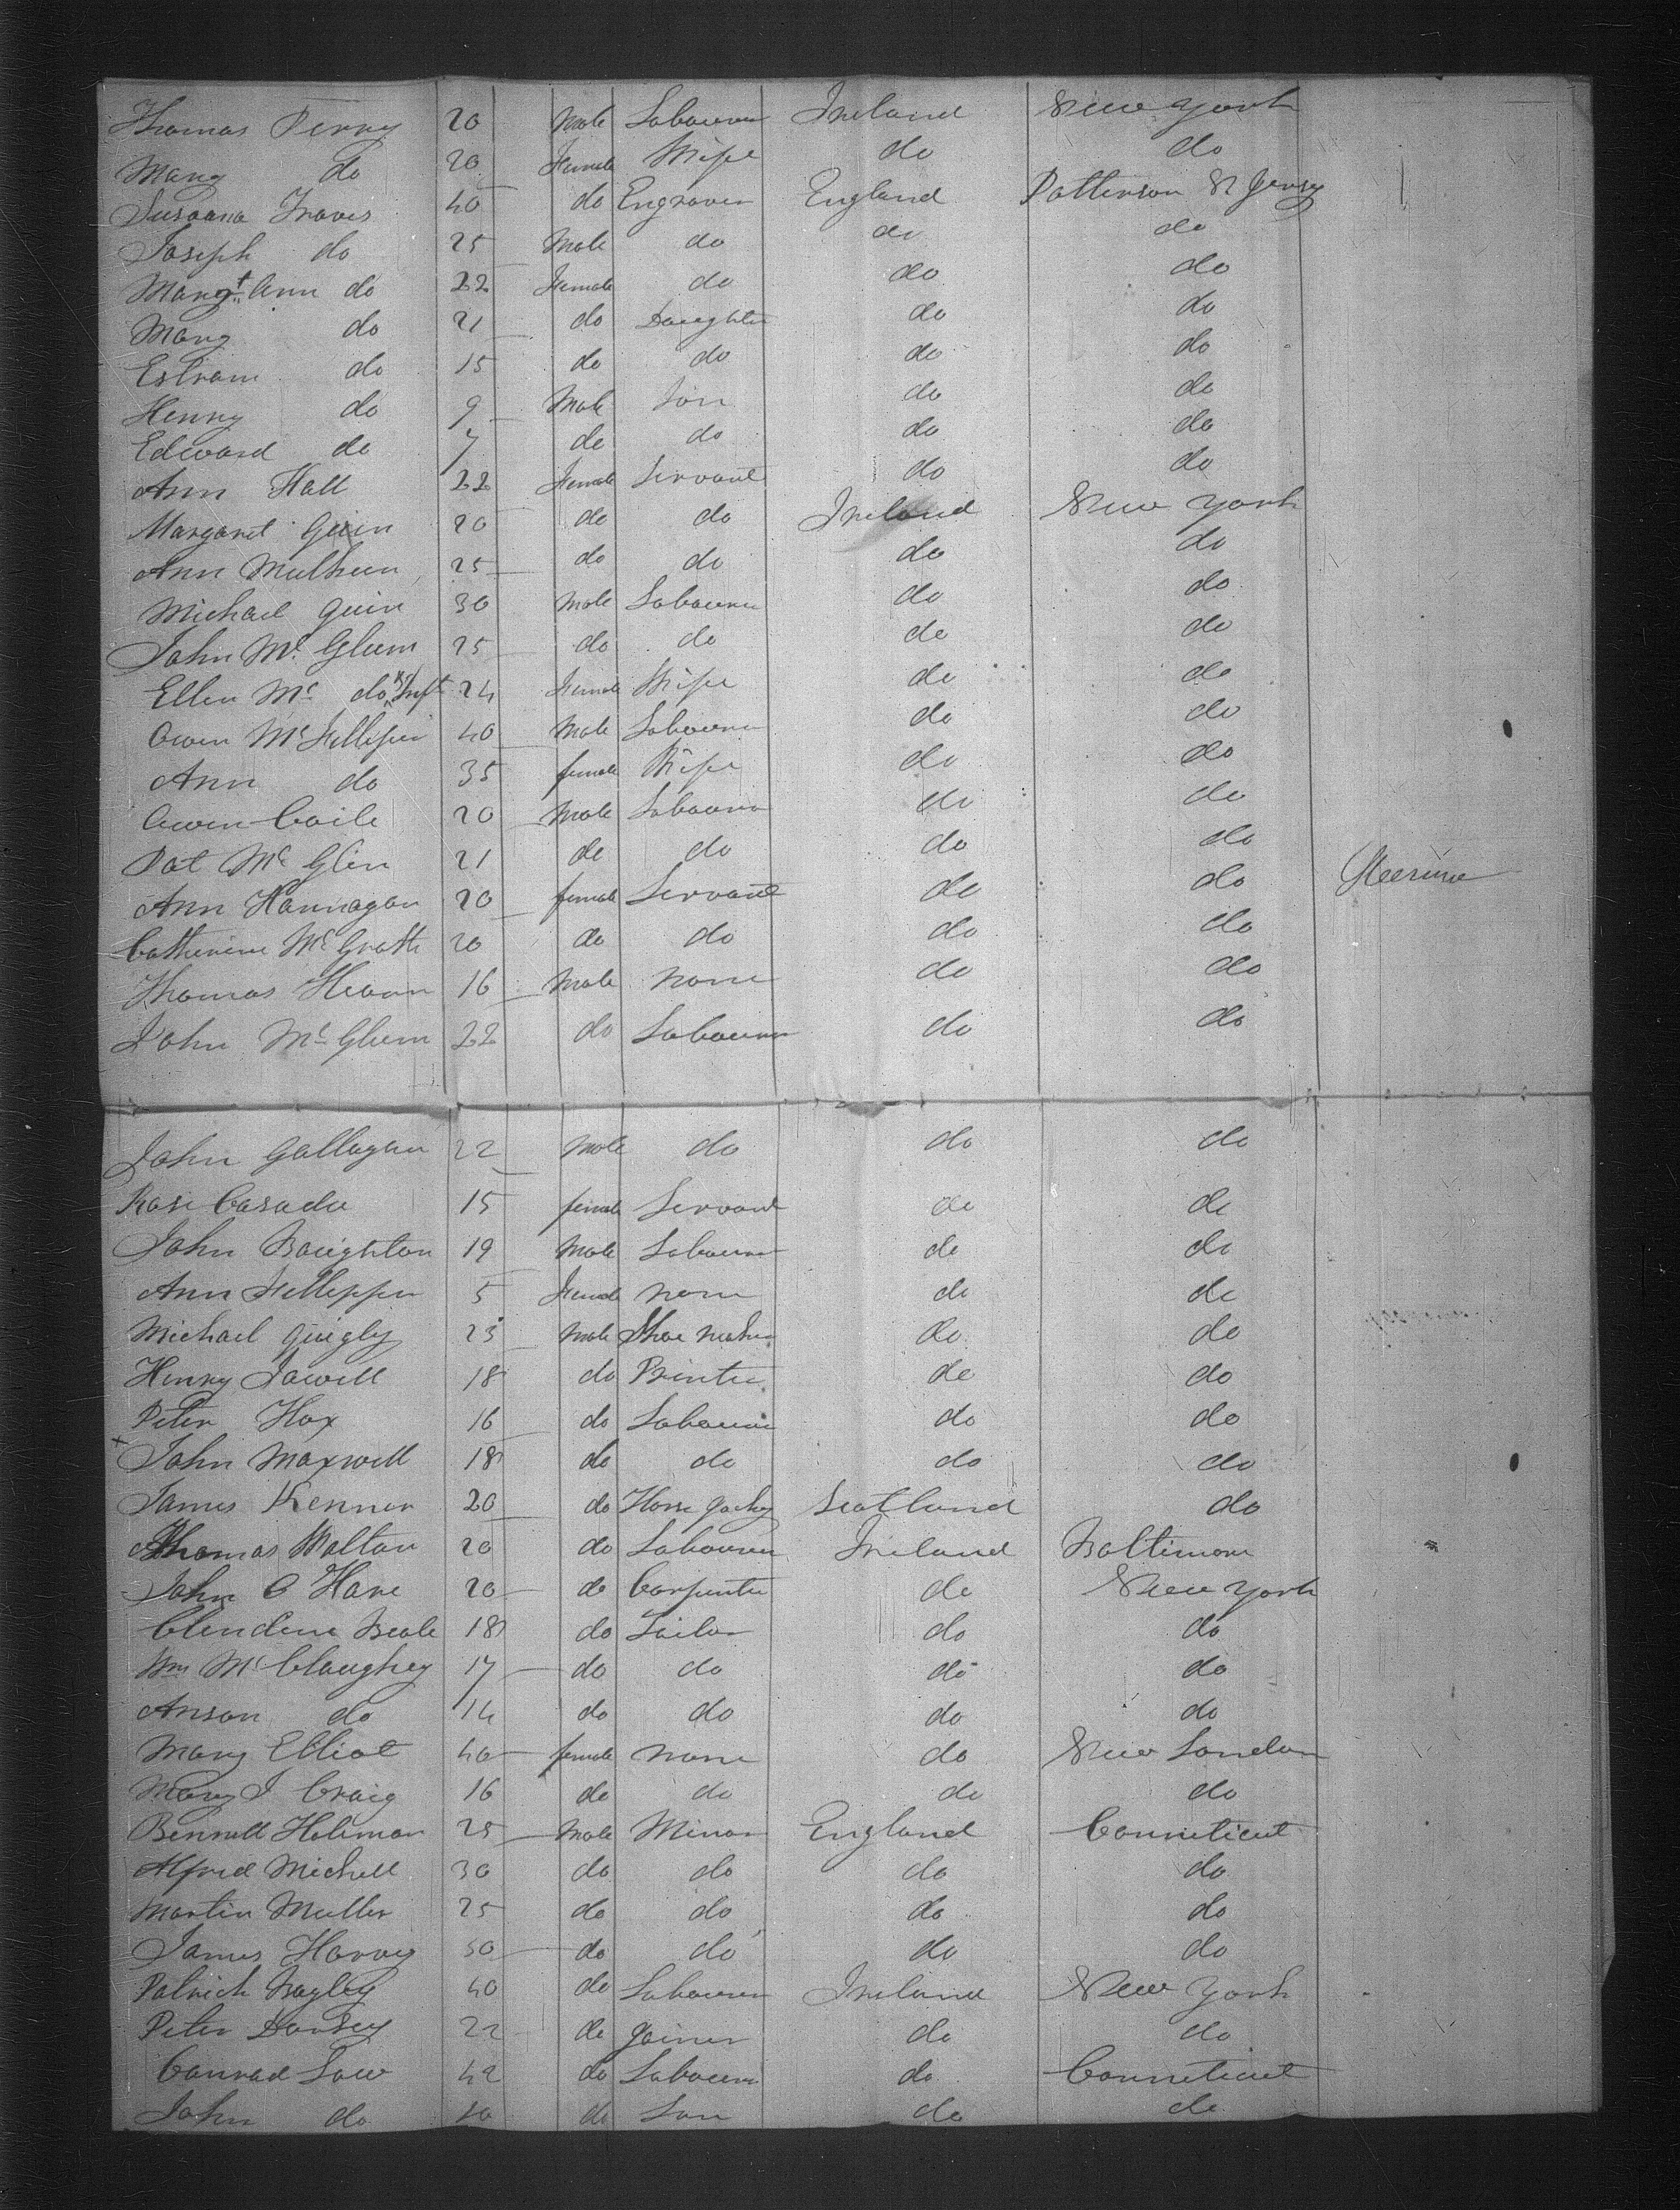 Thomas Perry 20 Male Labourer Ireland New York
Mary do 20 Female Wife do do
Susanna Travis 40 do Engraver England Patterson N Jersey
Joseph do 25 Male do do do
Margt Ann do 22 Female do do do
Mary do 21 do Daughter do do
do 15 do do do do
Henry do 9 Male Son do do
Edward do 7 do do do do
Ann Hall 22 Female Servant do do
Margaret Quin 20 do do Ireland New York
Ann 25 do do do do
Michael Quin 30 Male Labourer do do
John Mc Glum 25 do do do do
Ellen Mc do & Inft 24 Female Wife do do
Owen Mc Fillipin 40 Male Labourer do do
Ann do 35 female Wife do do
Owen Coile 20 Male Labourer do do
Pat Mc Glin 21 do do do do
Ann Hannagan 20 female Servant do do
Catherine McGrath 20 do do do do
Thomas Hearn 16 Male None do do
John Mc Glum 22 do Labourer do do
John Gallagan 22 Male do do do
Rose Casada 15 female Servant do do
John Boughton 19 Male Labourer do do
Ann Fillippin 5 Female None do do
Michael Quigly 23 Male Shoe Maker do do
Henry Jowell 18 do Printer do do
Peter Hox 16 do Labourer do do
x John Maxwell 18 do do do do
James Kennar 20 do Horse Jockey Scotland do
Thomas Walton 20 do Labourer Ireland Baltimore
John O Hare 20 do Carpenter do New York
Beale 18 do Tailor do do
Wm McClaughey 17 do do do do
Anson do 14 do do do do
Mary Elliot 40 female None do New London
Mary J Craig 16 do do do do
Bennett Holiman 25 Male Minor England Conneticut
Alfred Michell 30 do do do do
Martin Muller 25 do do do do
James Harvey 30 do do do do
Patrick Bagley 40 do Labourer Ireland New York
Peter Dorsey 22 do Joiner do do
Conrad Low 42 do Labourer do Conneticut
John do 10 do Son do do